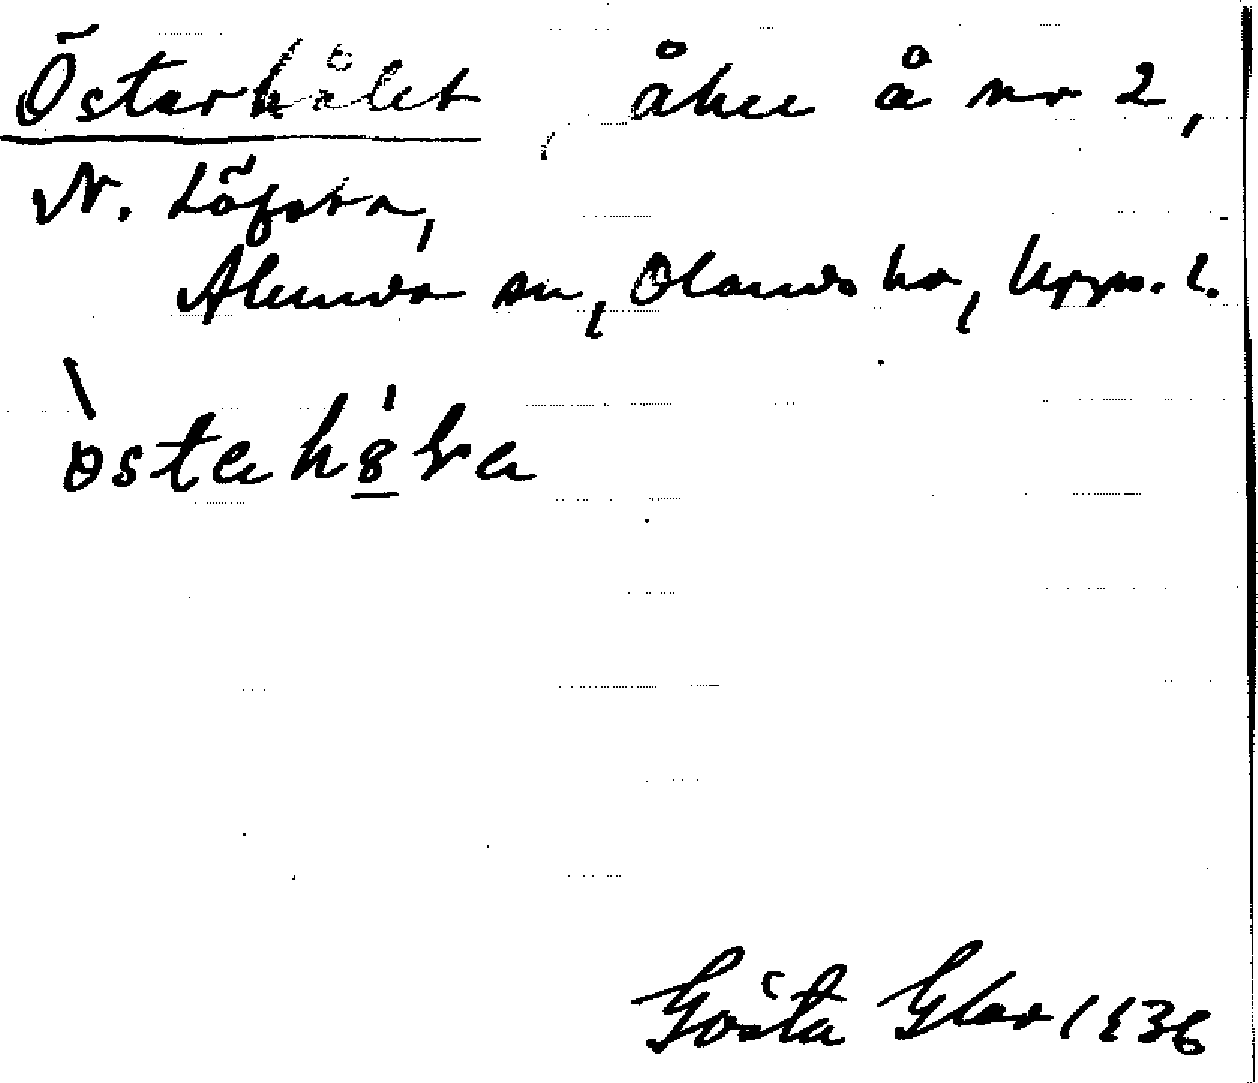 Österhålet, åker å nr 2,
N. Löfsta,
Alunda sn, Olands hd, Upps. l.
Gösta Glar 1936